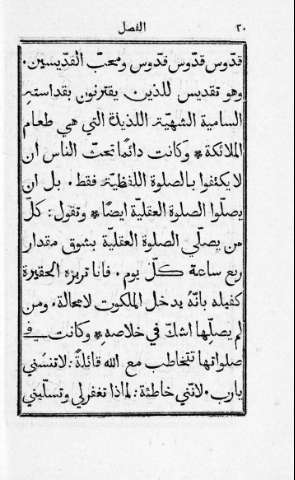 ٢٠ الفصل
قدّوس قدّوس قدّوس ومحبّ القدّيسين.
وهو تقديس للذين يقترنون بقداسته
السامية الشهيّة اللذيذة التي هي طعام
الملائكة * وكانت دائمًا تحثّ الناس ان
لا يكتفوا بالصلوة اللفظيّة فقط. بل ان
يصلّوا الصلوة العقلية ايضًا * وتقول: كلّ
من يصلّي الصلوة العقليّة بشوق مقدار
ربع ساعة كلّ يوم. فانا تريزه الحقيرة
كفيله بانّه يدخل الملكوت لا محالة. ومن
لم يصلّها اشكّ في خلاصه * وكانت في
صلواتها تتخاطب مع الله قائلةً: لا تنسَني
يا ربّ. لانّني خاطئة: لماذا تغفر لي وتسلّيني